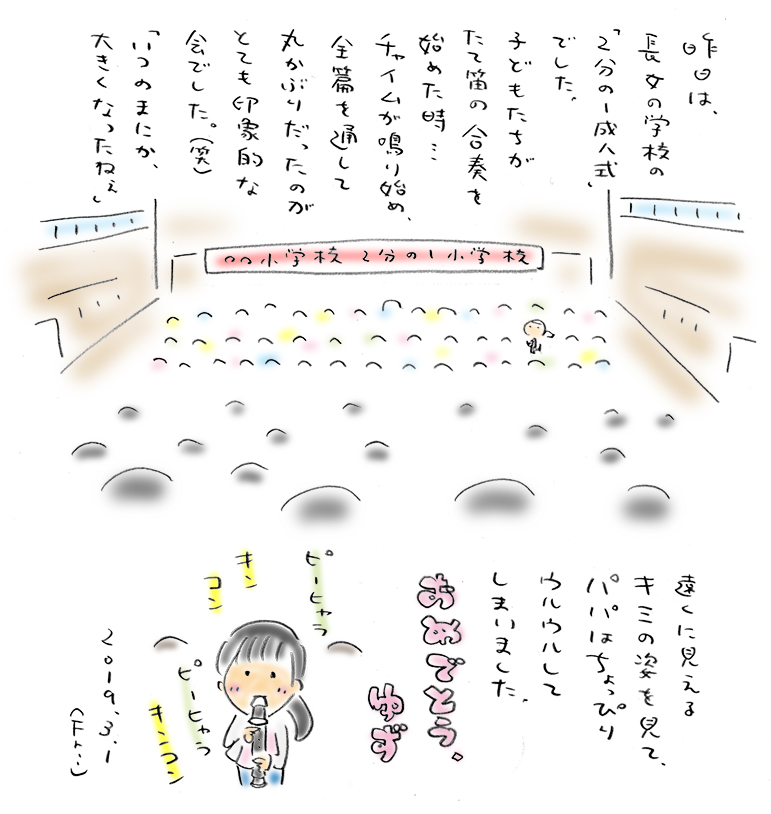 昨日は、
長女の学校の
「2分の1成人式」
でした。
子どもたちが
たて笛の合奏を
始めた時…
チャイムが鳴り始め、
全篇を通して
丸かぶりだったのが
とても印象的な
会でした。(笑)
「いつのまにか、
大きくなったねぇ」
○○小学校 2分の1小学校
遠くに見える
キミの姿を見て、
パパはちょっぴり
ウルウルして
しまいました。
おめでとう。
ゆず
ピーヒャラ
キン
コン
ピーヒャラ
キンコン
2019.3.1